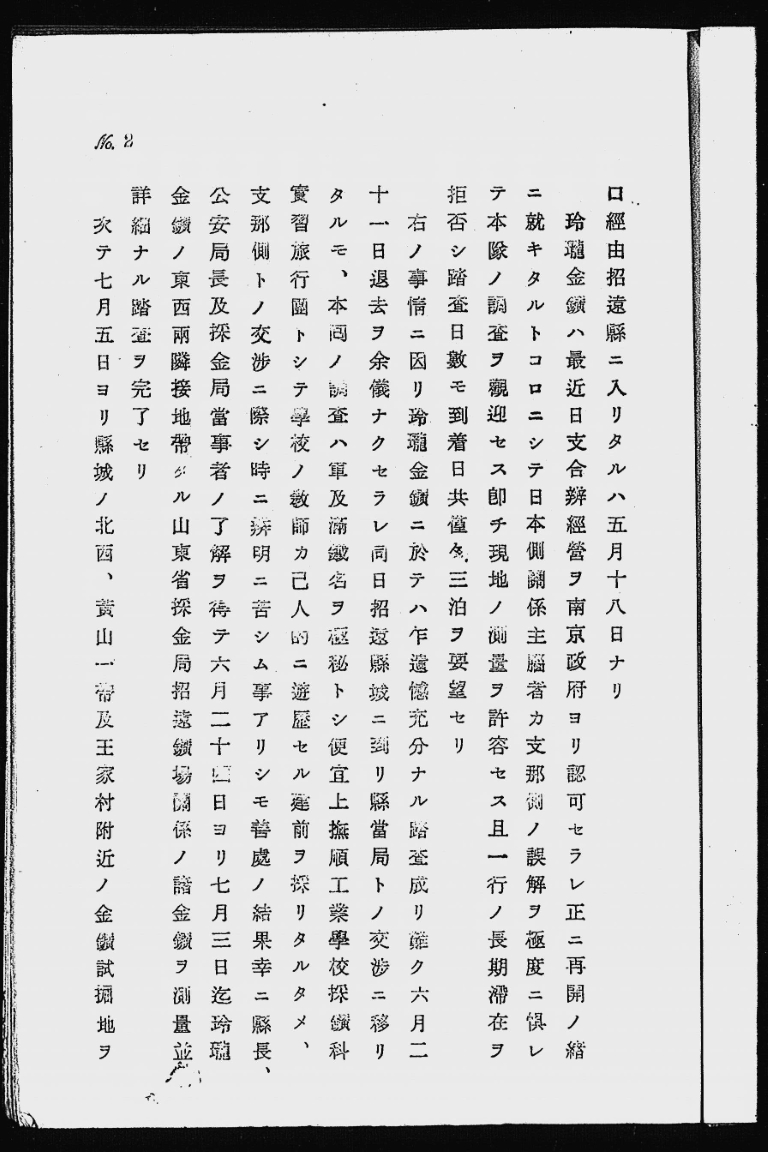 No. 2
口經由招遠縣ニ入リタルハ五月十八日ナリ
玲瓏金鑛ハ最近日支合辨經營ヲ南京政府ヨリ認可セラレ正ニ再開ノ緒
ニ就キタルトコロニシテ日本側關係主腦者カ支那側ノ誤解ヲ極度ニ惧レ
テ本隊ノ調査ヲ觀迎セス卽チ現地ノ測量ヲ許容セス且一行ノ長期滯在ヲ
拒否シ踏査日數モ到着日共僅々三泊ヲ要望セリ
右ノ事情ニ因リ玲瓏金鑛ニ於テハ乍遺憾充分ナル踏査成リ難ク六月二
十一日退去ヲ余儀ナクセラレ同日招遠縣城ニ到リ縣當局トノ交涉ニ移リ
タルモ、本問ノ調査ハ軍及滿鐵名ヲ極秘トシ便宜上撫順工業學校採鑛科
實習旅行團トシテ學校ノ敎師カ己人的ニ遊歷セル建前ヲ採リタルタメ、
支那側トノ交涉ニ際シ時ニ辨明ニ苦シム事アリシモ善處ノ結果幸ニ縣長、
公安局長及採金局當事者ノ了解ヲ得テ六月二十四日ヨリ七月三日迄玲瓏
金鑛ノ東西兩隣接地帶タル山東省採金局招遠鑛場關係ノ諸金鑛ヲ測量並
詳細ナル踏査ヲ完了セリ
次テ七月五日ヨリ縣城ノ北西、黃山一帶及王家村附近ノ金鑛試掘地ヲ